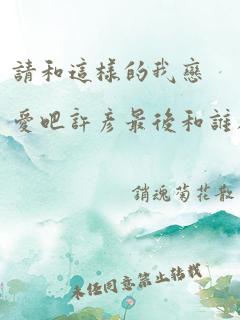 請和這樣的我戀
愛吧許彥最後和誰
銷魂菊花散
未任同意禁止转载